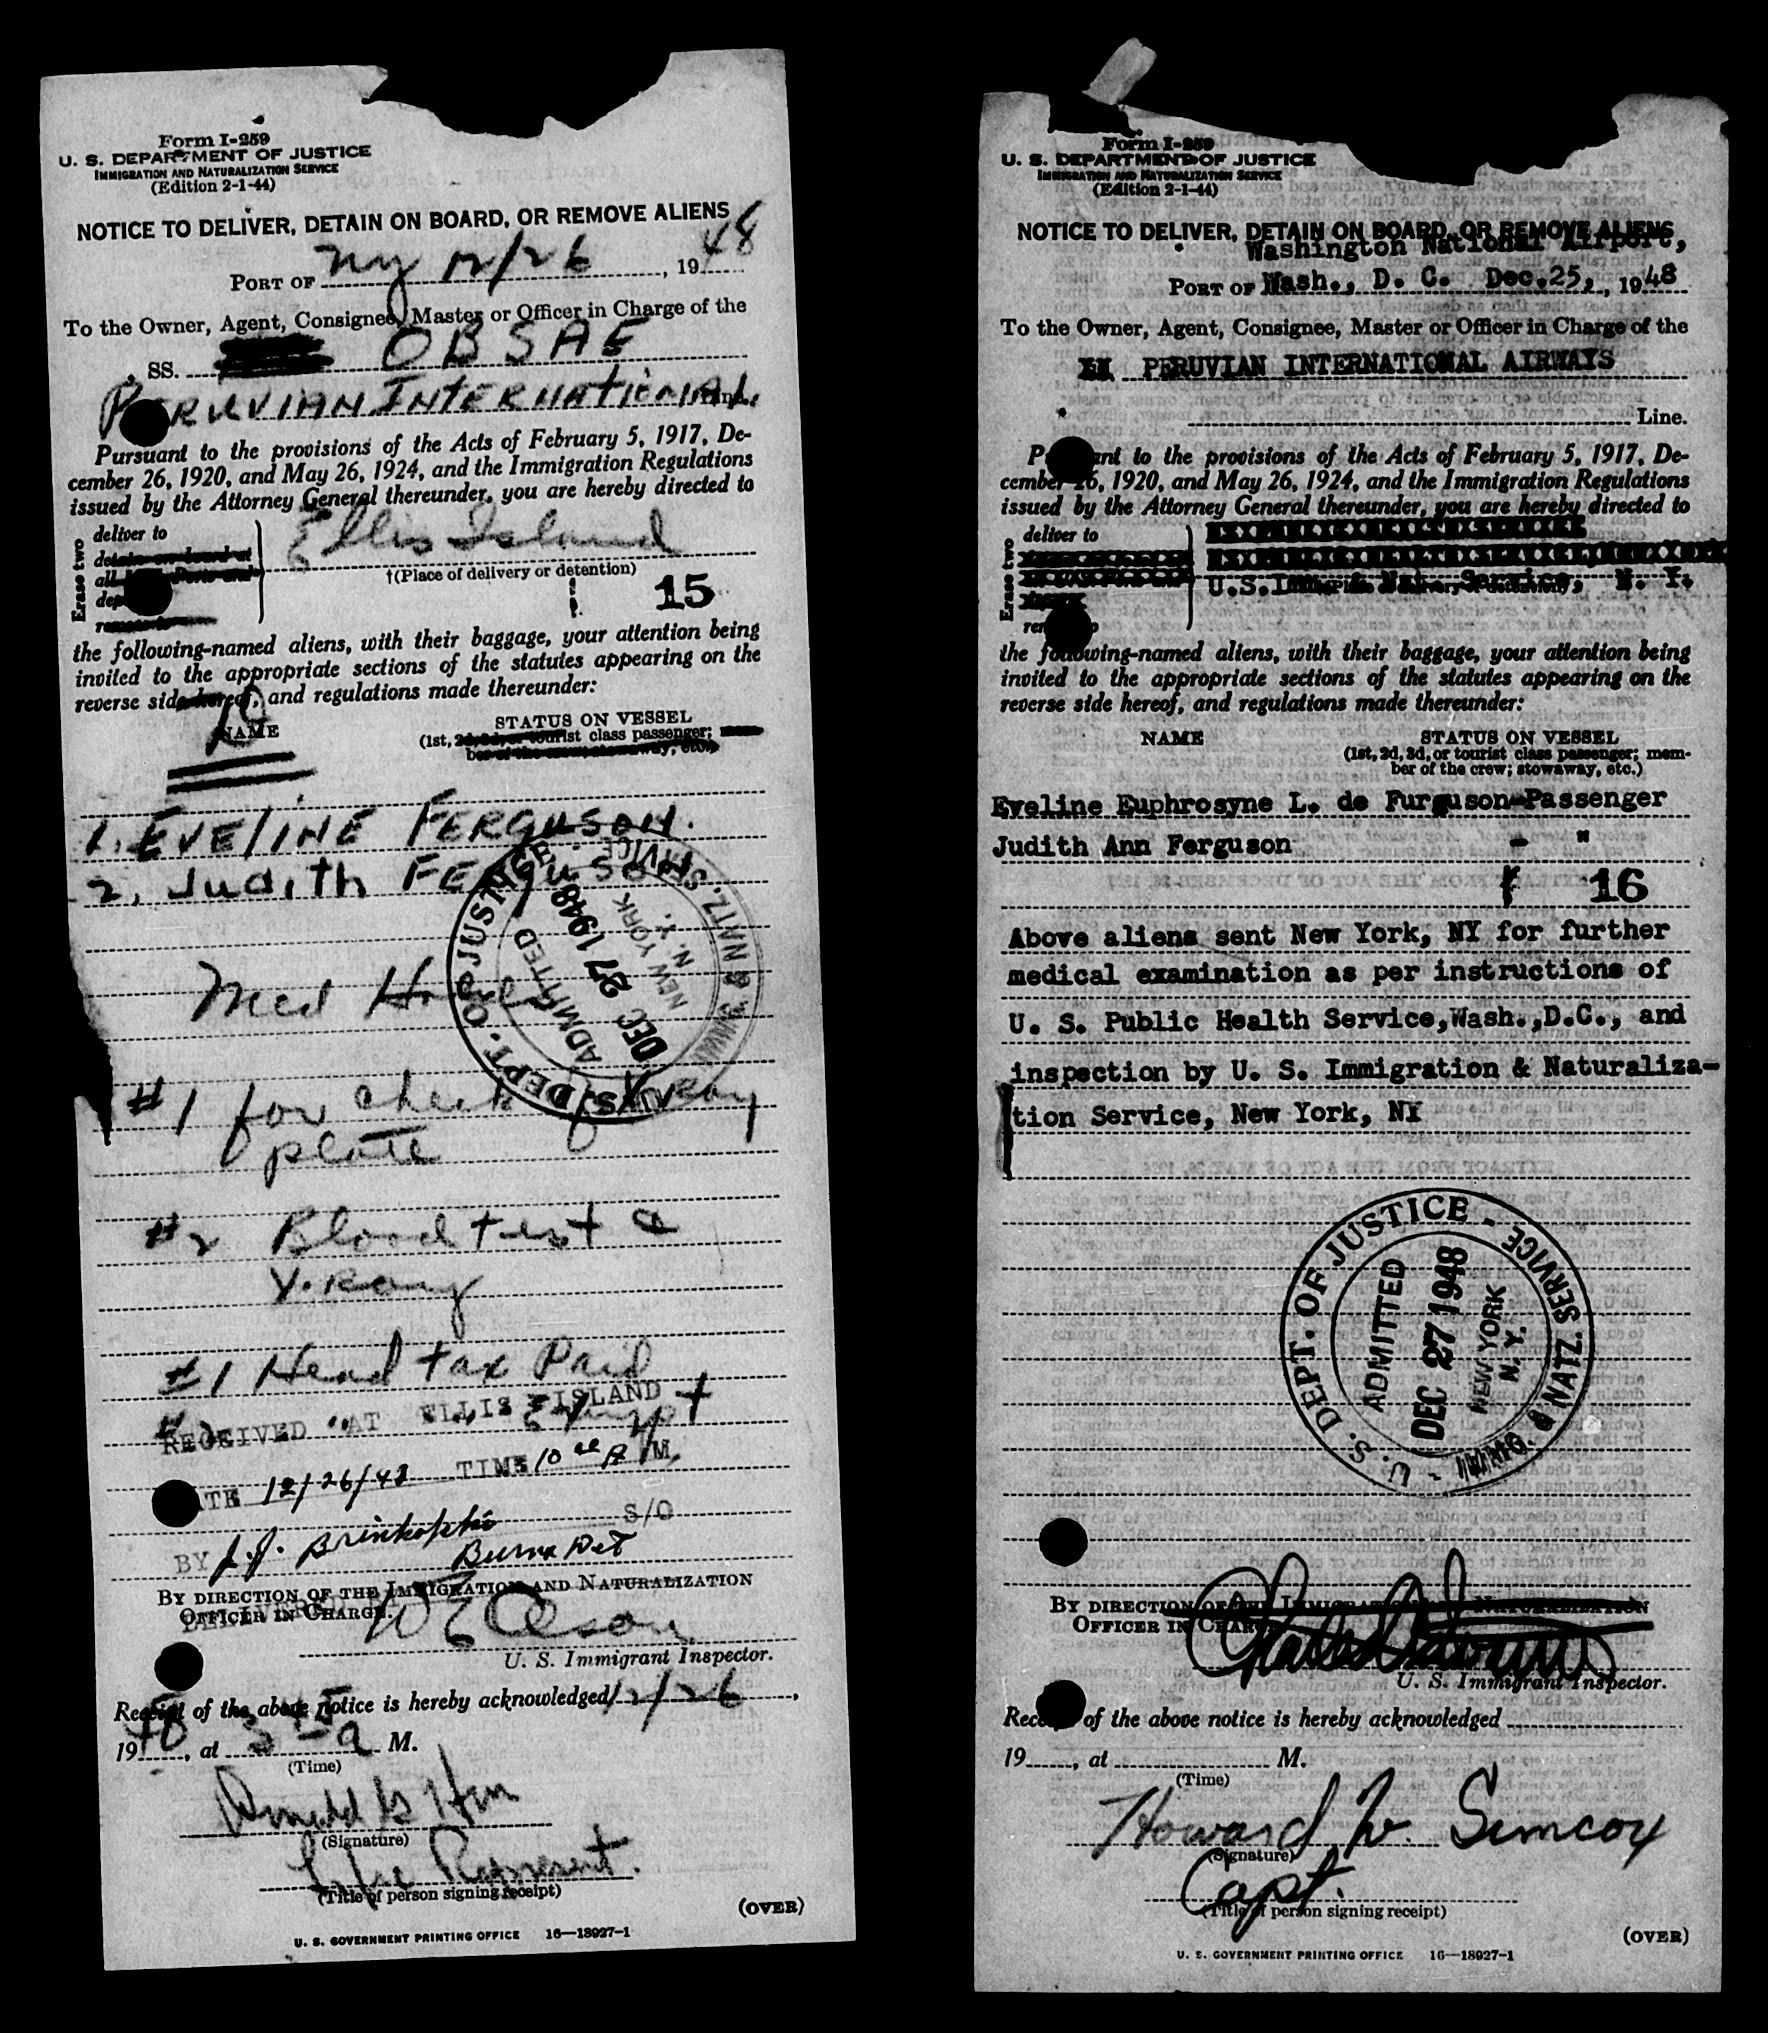 Form I-259
U. S. DEPARTMENT OF JUSTICE
IMMIGRATION AND NATURALIZATION SERVICE
(Edition 2-1-44)
NOTICE TO DELIVER, DETAIN ON BOARD, OR REMOVE ALIENS
PORT OF NY 12/26, 1948
To the Owner, Agent, Consignee, Master or Officer in Charge of the
SS. OBSAE
PERUVIAN INTERNATIONAL Line.
Pursuant to the provisions of the Acts of February 5, 1917, De-
cember 26, 1920, and May 26, 1924, and the Immigration Regulations
issued by the Attorney General thereunder, you are hereby directed to
Erase two
deliver to
Ellis Island
†(Place of delivery or detention)
15
the following-named aliens, with their baggage, your attention being
invited to the appropriate sections of the statutes appearing on the
reverse side hereof, and regulations made thereunder:
NAME
STATUS ON VESSEL
(1st, 2d, 3d, or tourist class passenger; mem-
ber of the crew; stowaway, etc.)
1. EVELINE FERGUSON.
2. Judith FERGUSON
U. S. DEPT. OF JUSTICE - IMMIG. & NATZ. SERVICE -
ADMITTED
DEC 27 1948
NEW YORK
N. Y.
Med Hold
#1 for check of X Ray
plate
#2 Blood test &
X. Ray
#1 Head tax Paid
#2 " " Exempt
RECEIVED AT ELLIS ISLAND
DATE 12/26/48 TIME 10 A M.
BY J.J. Brinkopke S/O
Burns Det
BY DIRECTION OF THE IMMIGRATION AND NATURALIZATION
OFFICER IN CHARGE.
W E Olson
U. S. Immigrant Inspector.
Receipt of the above notice is hereby acknowledged 12/26,
1948, at 3 A M.
(Time)
(Signature)
Represent.
(Title of person signing receipt)
(OVER)
U. S. GOVERNMENT PRINTING OFFICE 16—18927-1
Form I-259
U. S. DEPARTMENT OF JUSTICE
IMMIGRATION AND NATURALIZATION SERVICE
(Edition 2-1-44)
NOTICE TO DELIVER, DETAIN ON BOARD, OR REMOVE ALIENS
Washington National Airport,
PORT OF Wash., D. C. Dec.25, 1948
To the Owner, Agent, Consignee, Master or Officer in Charge of the
PERUVIAN INTERNATIONAL AIRWAYS
Line.
Pursuant to the provisions of the Acts of February 5, 1917, De-
cember 26, 1920, and May 26, 1924, and the Immigration Regulations
issued by the Attorney General thereunder, you are hereby directed to
Erase two
deliver to
U.S.Imm. & Nat. Service, N. Y.
the following-named aliens, with their baggage, your attention being
invited to the appropriate sections of the statutes appearing on the
reverse side hereof, and regulations made thereunder:
NAME
STATUS ON VESSEL
(1st, 2d, 3d, or tourist class passenger; mem-
ber of the crew; stowaway, etc.)
Eveline Euphrosyne L. de Furguson-Passenger
Judith Ann Ferguson - "
16
Above aliens sent New York, NY for further
medical examination as per instructions of
U. S. Public Health Service,Wash.,D.C., and
inspection by U. S. Immigration & Naturaliza-
tion Service, New York, NY
U. S. DEPT. OF JUSTICE - IMMIG. & NATZ. SERVICE -
ADMITTED
DEC 27 1948
NEW YORK
N. Y.
BY DIRECTION OF THE IMMIGRATION AND NATURALIZATION
OFFICER IN CHARGE.
U. S. Immigrant Inspector.
Receipt of the above notice is hereby acknowledged
19 , at M.
(Time)
Howard W. Simcox
(Signature)
Capt.
(Title of person signing receipt)
(OVER)
U. S. GOVERNMENT PRINTING OFFICE 16—18927-1